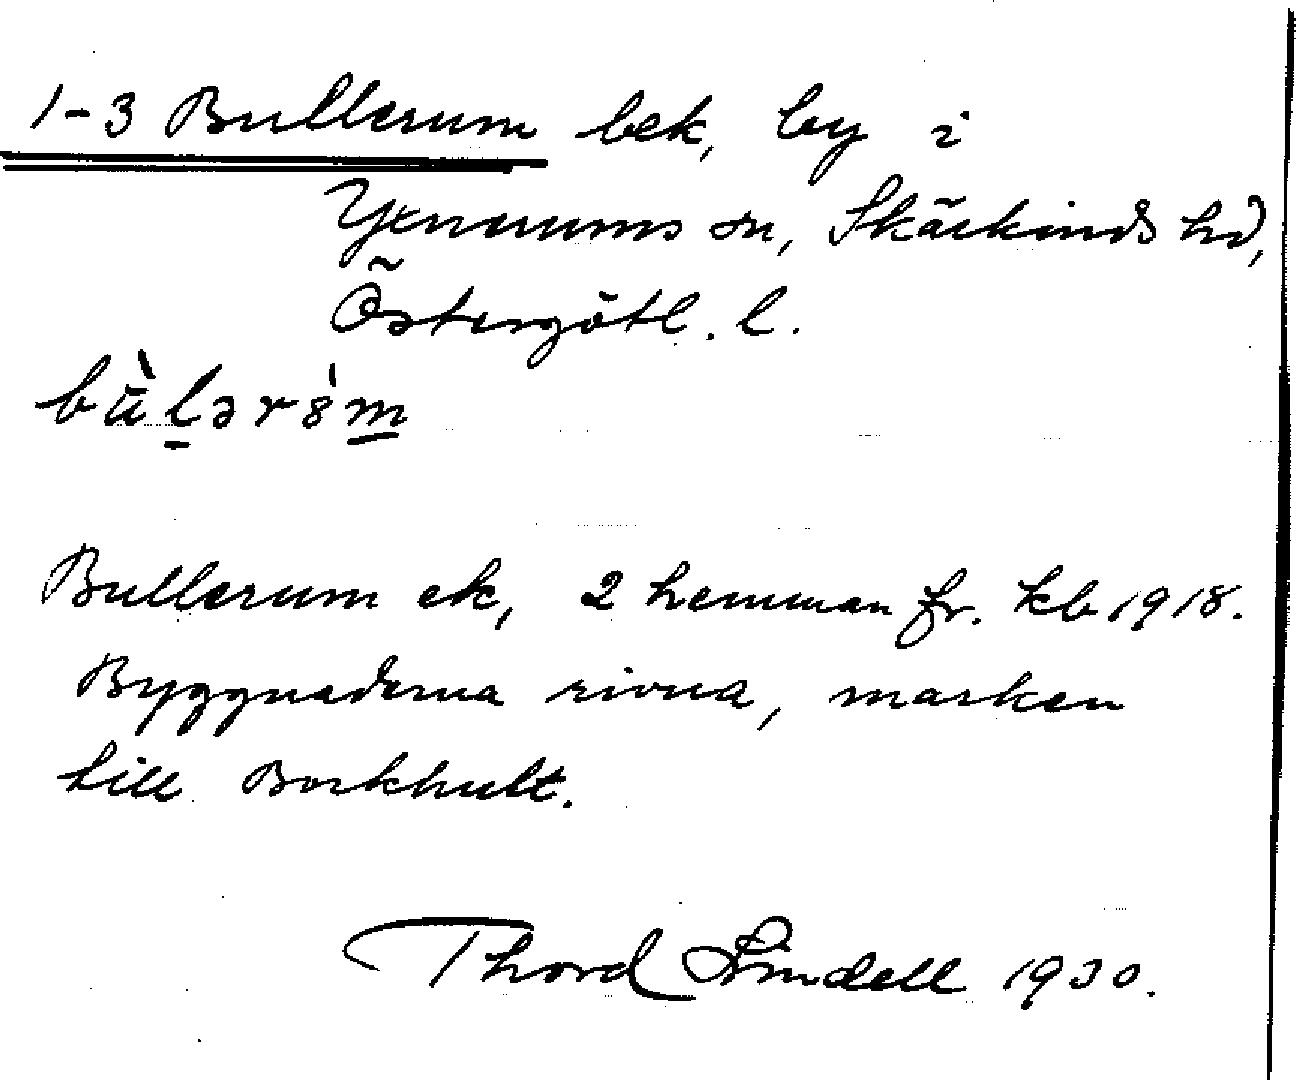 1-3 Bullerum bek, by i
Yxnerums sn, Skärkinds hd,
Östergötl. l.
Bullerum ek, 2 hemman fr. kb 1918.
Byggnaderna rivna, marken
till Borkhult.
Thord Lindell 1930.